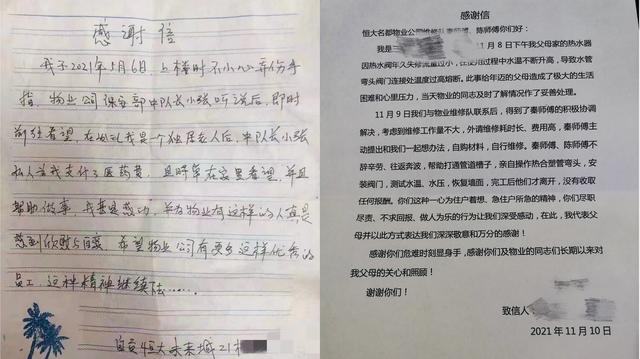 感谢信
我于2021年5月6日上楼时不小心弄伤手
指,物业公司保安部中队长小张听说后,即时
前往看望,在得知我是一个独居老人后,中队长小张
私人为我支付了医药费,且时常在家里看望,并且
帮助做事,我甚是感动,并为物业有这样的人真是
感到欣慰与自豪,希望物业公司有更多这样优秀的
员工,这种精神继续传……
自贡恒大未来城21栋
感谢信
恒大名都物业公司维修队秦师傅、陈师傅你们好:
我是 11月8日下午我父母家的热水器
因热水阀年久失修流量过小,在使用过程中水温不断升高,导致水管
弯头阀门连接处温度过高熔断。此事给年迈的父母造成了极大的生活
困难和心里压力,当天物业的同志及时了解情况作了妥善处理。
11月9日我们与物业维修队联系后,得到了秦师傅的积极协调
解决,考虑到维修工作量不大,外请维修耗时长、费用高,秦师傅主
动提出和我们一起想办法,自购材料,自行维修。秦师傅、陈师傅不
辞辛劳、往返奔波,帮助打通管道槽子,亲自操作热合塑管弯头,安
装阀门,测试水温、水压,恢复墙面,完工后他们才离开,没有收取
任何报酬。你们这种一心为住户着想、急住户所急的精神,你们尽职
尽责、不求回报、做人为乐的行为让我们深受感动,在此,我代表父
母并以此方式表达我们深深敬意和万分的感谢!
感谢你们危难时刻显身手,感谢你们及物业的同志们长期以来对
我父母的关心和照顾!
谢谢你们!
致信人:
2021年11月10日